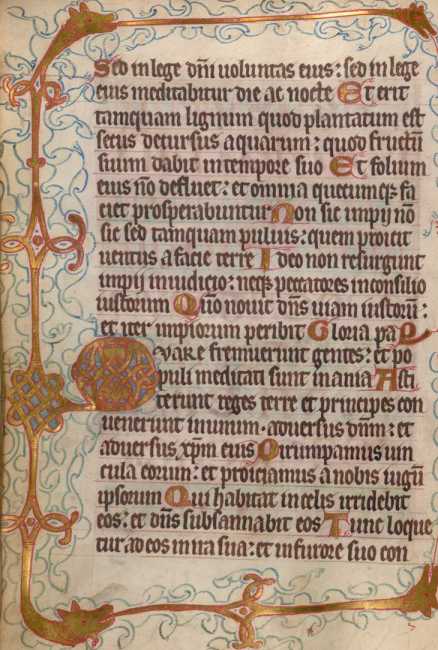 Sed in lege dn̄i uoluntas eius: sed in lege
eius meditabitur die ac nocte Et erit
tamquam lignum quod plantatum est
secus decursus aquarum: quod fructū
suum dabit in tempore suo Et folium
eius nō defluet: et omnia quecumqꝫ fa
ciet prosperabuntur Non sic impij nō
sic sed tamquam puluis: quem proicit
uentus a facie terre Ideo non resurgunt
impij in iudicio: neqꝫ peccatores in consilio
iustorum Qm̄o nouit dn̄s uiam iustorū:
et iter impiorum peribit Gloria pa
Quare fremuerunt gentes: et po
puli meditati sunt inania Asti
terunt reges terre et principes con
uenerunt in unum· aduersus dnm̄: et
aduersus xp̄m eius Dirumpamus uin
cula eorum: et proiciamus a nobis iugū
ipsorum Qui habitat in celis irridebit
eos: et dn̄s subsannabit eos Tunc loque
tur ad eos in ira sua: et in furore suo con